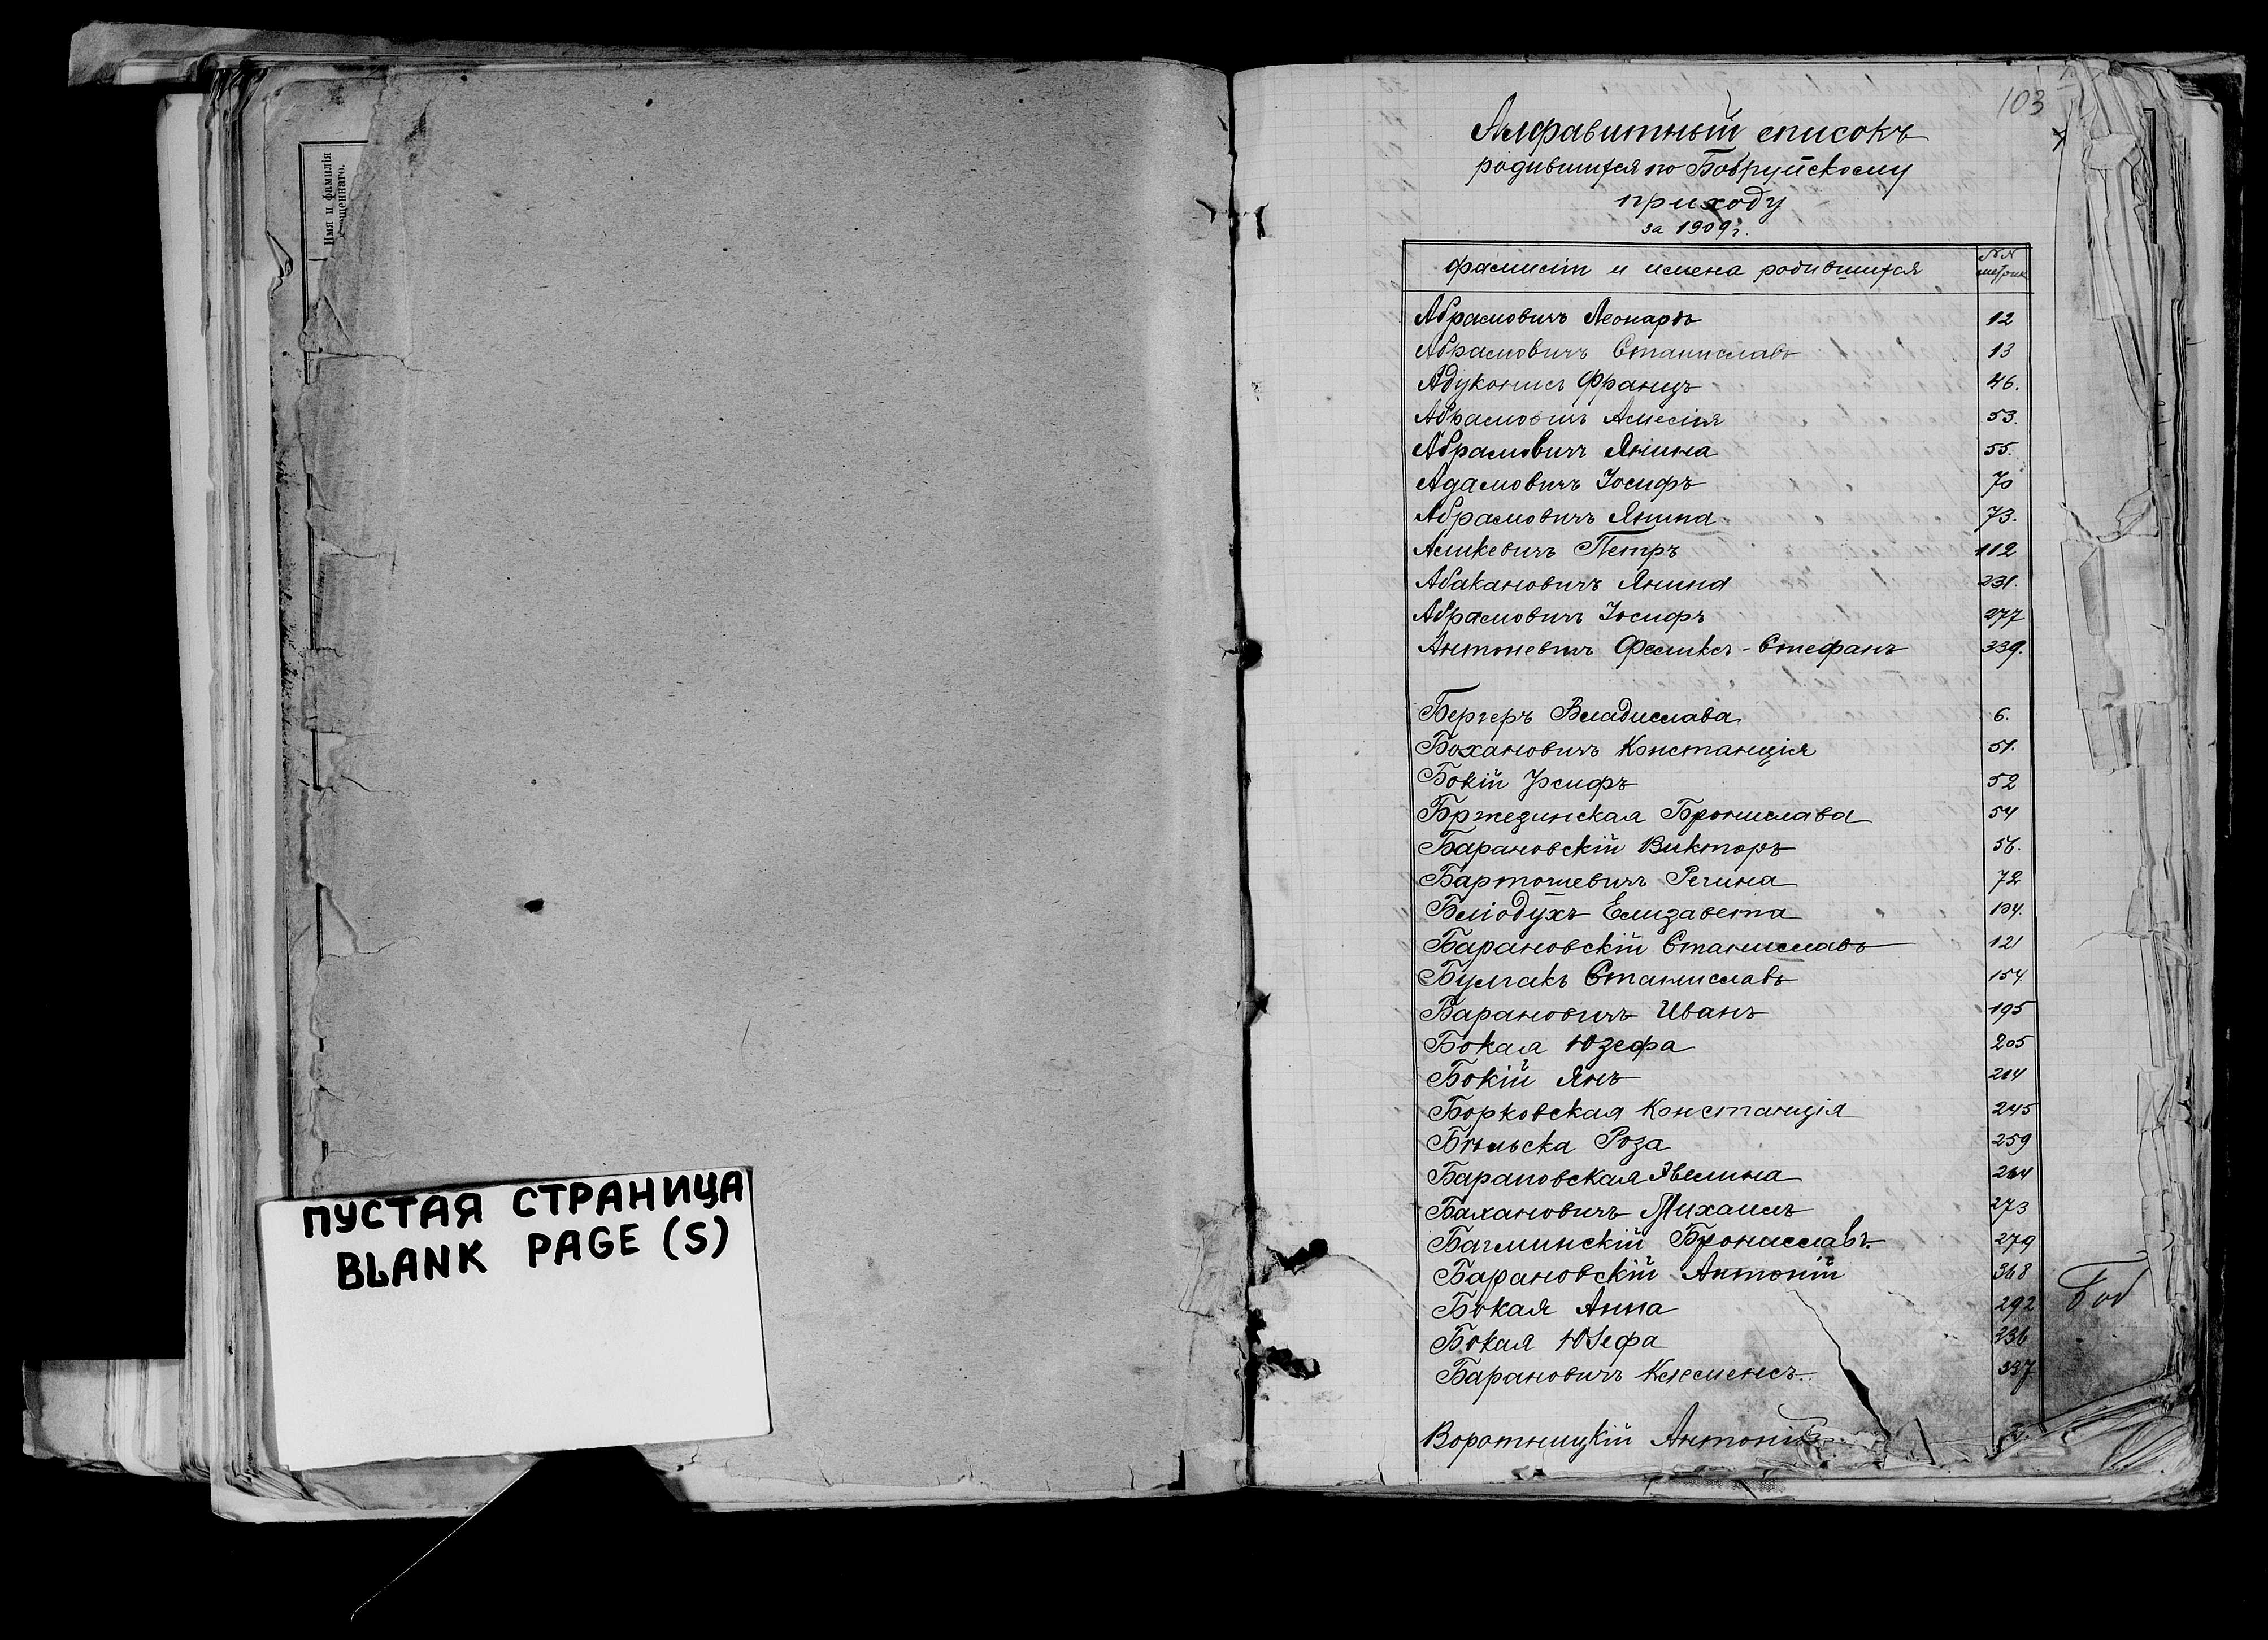 Имя и фамилія
103
Алфавитный списокъ
родившихся по Бобруйскому
приходу
за 1909 г.
Фамиліи и имена родившихся
№№ метрик
Абрамовичъ Леонардъ 12
Абрамовичъ Станиславъ 13
Адуконисъ Францъ 46.
Абрамовичъ 53.
Абрамовичъ Янина 55.
Адамовичъ Іосифъ 70
Абрамовичъ Янина 73.
Асикевичъ Петръ 112
Абакановичъ Янина 231.
Абрамовичъ Іосифъ 277
Антоневичъ Феликсъ-Стефанъ 339.
Бергеръ Владислава 6.
Бохановичъ Констанція 51.
Бокій Іосифъ 52
Бржезинская Бронислава 54
Барановскій Викторъ 56.
Бартошевичъ Регина 72
Бліодухъ Елизавета 104.
Барановскій Станиславъ 121
Булгакъ Станиславъ 154
Барановичъ Иванъ 195
Бокая Юзефа 205
Бокій Янъ 214
Борковская Констанція 245
Бѣльска Роза 259
Барановская Эвелина 264
Бахановичъ Михаилъ 273
Багминскій Брониславъ 279
Барановскій Антоній 368
Бокая Анна 292
Бокая Юзефа 336
Барановичъ Клеменсъ 337
Воротницкій Антоній
ПУСТАЯ СТРАНИЦА
BLANK PAGE (S)